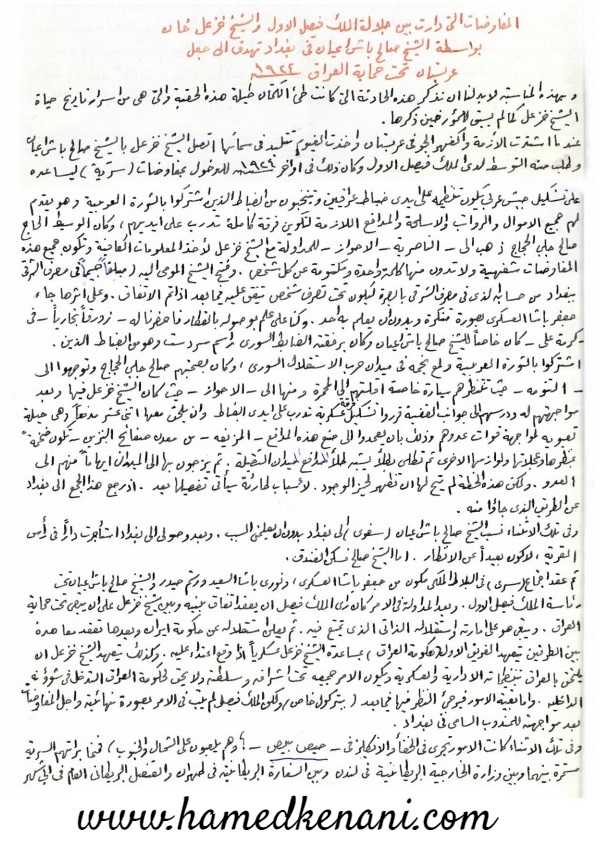 المفاوضات التي دارت بين جلالة الملك فيصل الاول والشيخ خزعل خان
بواسطة الشيخ صالح باش اعيان في بغداد تهدف الى جعل
عربستان تحت حماية العراق ١٩٢٤
وبهذه المناسبة لا بد لنا ان نذكر هذه الحادثة التي كانت طي الكتمان طيلة هذه الحقبة والتي هي من اسرار تاريخ حياة
الشيخ خزعل كما لم يسبق للمؤرخين ذكرها.
عندما اشتدت الأزمة واكفهر الجو في عربستان واخذت الغيوم تتلبد في سمائها اتصل الشيخ خزعل بالشيخ صالح باش اعيان
وطلب منه التوسط لدى الملك فيصل الاول وكان ذلك في اواخر للدخول بمفاوضات (سرية) ليساعده
على تشكيل جيش عربي يكون تنظيمه على ايدي ضباط عراقيين وينتخبون من الضباط الذين اشتركوا بالثورة العربية وهو يقدم
لهم جميع الاموال والرواتب والاسلحة والمدافع اللازمة لتكوين فرقة كاملة تدرب على ايديهم، وكان الوسيط الحاج
صالح حلبي الحجاج ذهب الى - الناصرية - الاحواز - للمداولة مع الشيخ خزعل لأخذ المعلومات الكافية وتكون جميع هذه
المفاوضات شفهية ولا تدون منها كلمة واحدة ومكتومة عن كل شخص. وفتح الشيخ المومى اليه (مبلغاً جسيماً) في مصرف الشرقي
ببغداد من حسابه لدى في مصرف الشرقي بالبصرة ليكون تحت تصرف شخص يتفق عليه فيما بعد اذا تم الاتفاق. وعلى اثرها جاء
جعفر باشا العسكري بصورة متنكرة وبدون ان يعلم به احد. وكنا على علم بوصوله بالقطار فاحضرنا له - زورقاً بخارياً - في
- كرمة علي - كان خاصاً للشيخ صالح باش اعيان وكان برفقته الضابط السوري راسم سردست وهو من الضباط الذين.
اشتركوا بالثورة العربية ولمع نجمه في ميدان حرب الاستقلال السوري، وكان بصحبتهم صالح حلبي الحجاج وتوجهوا الى
- التنومه - حيث تنتظرهم سيارة خاصة اقلتهم الى المحمرة ومنها الى - الاحواز - حيث كان الشيخ خزعل فيها وبعد
مواجهتهم له ودرسهم الى جوانب القضية قرروا تشكيل فرقة عسكرية تدرب على ايدي الضباط وان يلحق معها اثني عشر مدفعاً، وهي حيلة
تمويه لمواجهة قوات عدوهم وذلك بان يعمدوا الى صنع هذه المدافع - المزيفة - من معدن صفائح البنزين - تكون ضخمة
بمنظرها وعجلاتها ولوازمها الاخرى ثم تطلى بطلاء يشبه طلاء المدافع للميدان الثقيلة. ثم يزجون بها الى الميدان ايهاماً منهم الى
العدو. ولكن هذه الخطة لم يتح لها ان تظهر لحيز الوجود. لأسباب طارئة سيأتي تفصيلها بعد. اذ رجع هذا الجمع الى بغداد
عن الطريق الذي جاؤا منه.
وفي تلك الاثناء نسب الشيخ صالح باش اعيان (سفري) الى بغداد بدون ان يعلمني السبب. وبعد وصولي الى بغداد استأجرت داراً في رأس
القرية، لأكون بعيداً عن الانظار. اما الشيخ صالح فسكن الفندق.
ثم عقد اجتماع (سري) في البلاط الملكي مكون من جعفر باشا العسكري، ونوري باشا السعيد ورستم حيدر والشيخ صالح باش اعيان تحت
رئاسة الملك فيصل الاول. وبعد المداولة في الامر كان رأي الملك فيصل ان يعقد اتفاق بينه وبين الشيخ خزعل على ان يبقى تحت حماية
العراق. ويبقى هو على امارته واستقلاله الذاتي الذي تمتع فيه. ثم يعلن استقلاله عن حكومة ايران وبعدها تعقد معاهدة
بين الطرفين يتعهد الفريق الاول (حكومة العراق) بمساعدة الشيخ خزعل عسكرياً اذا وقع اعتداء عليه. وكذلك يتعهد الشيخ خزعل ان
يلتحق بالعراق بتنظيماته الادارية والعسكرية ويكون الامر جميعه تحت اشرافه وسلطته ولا يحق لحكومة العراق التدخل في شؤونه
الداخلية. واما بقية الامور فيرجئ النظر فيها فيما بعد (بپتركول خاص) ولكن الملك فيصل لم يبت في الامر بصورة نهائية واجل المفاوضات
بعد مواجهته للمندوب السامي في بغداد.
وفي تلك الاثناء كانت الامور تجري في الخفاء والانكليز في - حيص بيص - ؟ وهم يلعبون على الشمال والجنوب) فمخابراتهم السرية
مستمرة بينها وبين وزارة الخارجية البريطانية في لندن وبين السفارة البريطانية في طهران والقنصل البريطاني العام في
www.hamedkenani.com